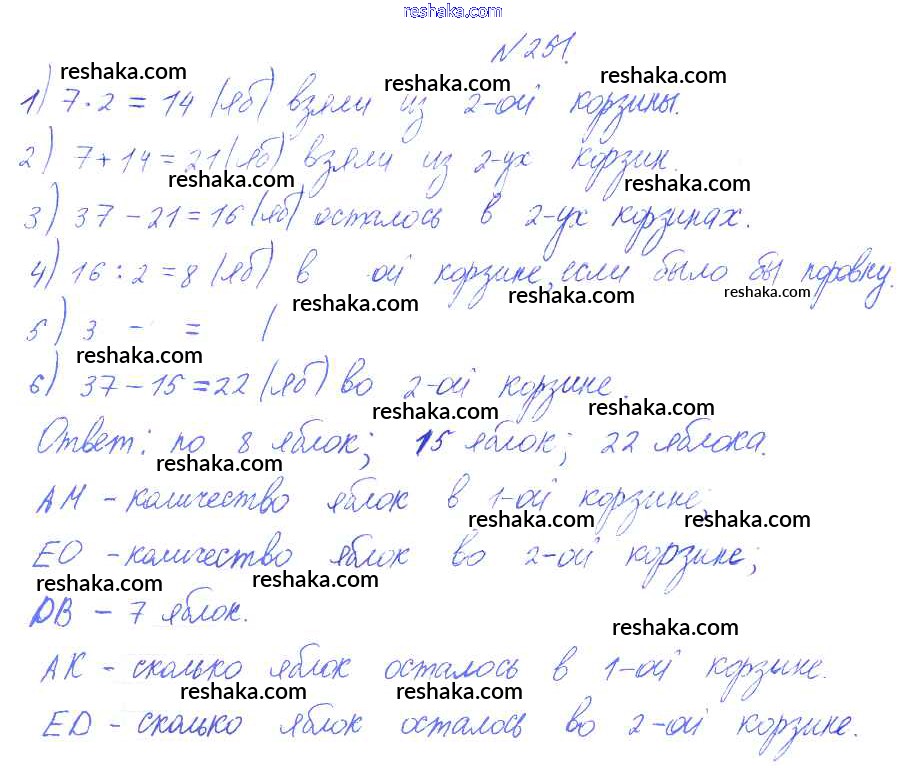 reshaka.com
№251.
reshaka.com reshaka.com reshaka.com
1) 7·2 = 14 (яб) взяли из 2-ой корзины.
2) 7+14=21(яб) взяли из 2-ух корзин.
reshaka.com reshaka.com
3) 37-21=16 (яб) осталось в 2-ух корзинах.
4) 16:2=8 (яб) в ой корзине, если было бы поровну.
reshaka.com reshaka.com reshaka.com
5) 3 - = (
reshaka.com
6) 37-15=22 (яб) во 2-ой корзине.
reshaka.com reshaka.com
Ответ: по 8 яблок; 15 яблок; 22 яблока.
reshaka.com
АМ - количество яблок в 1-ой корзине;
reshaka.com reshaka.com
ЕО - количество яблок во 2-ой корзине;
reshaka.com reshaka.com
DВ - 7 яблок.
reshaka.com
АК - сколько яблок осталось в 1-ой корзине.
reshaka.com reshaka.com
ЕD - сколько яблок осталось во 2-ой корзине.